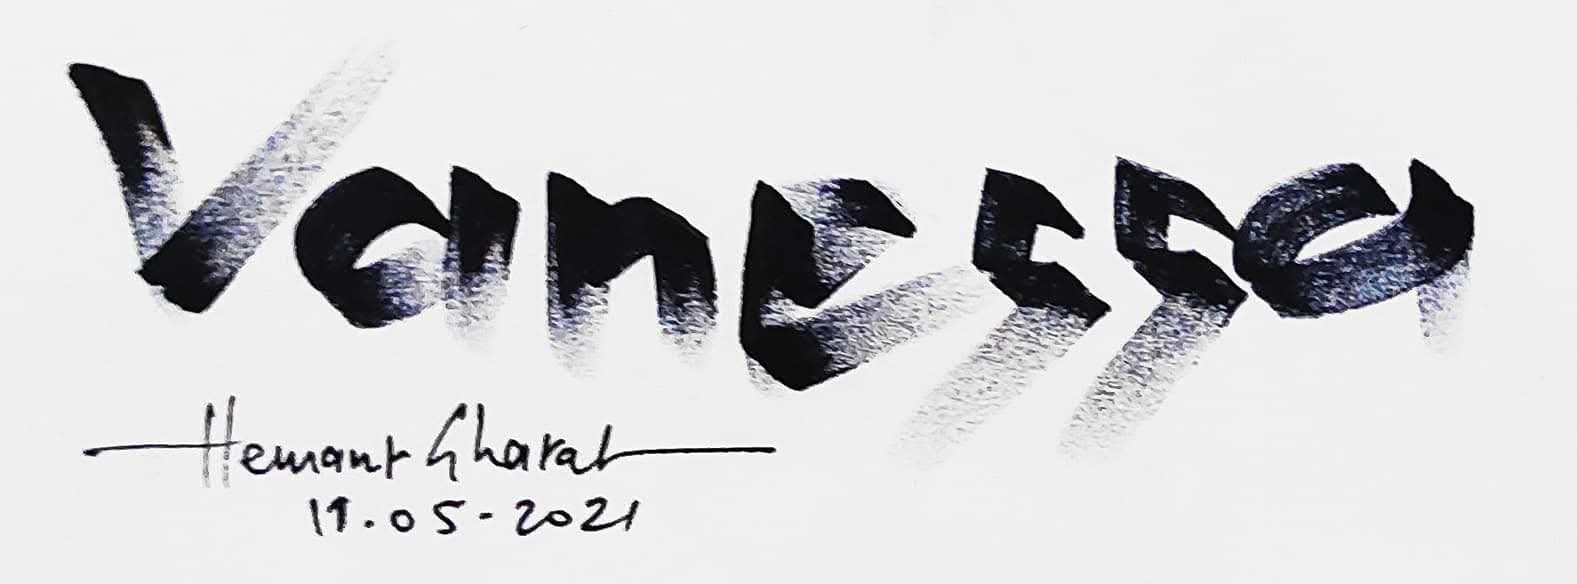 Vanessa
Hemant Gharat
19.05-2021